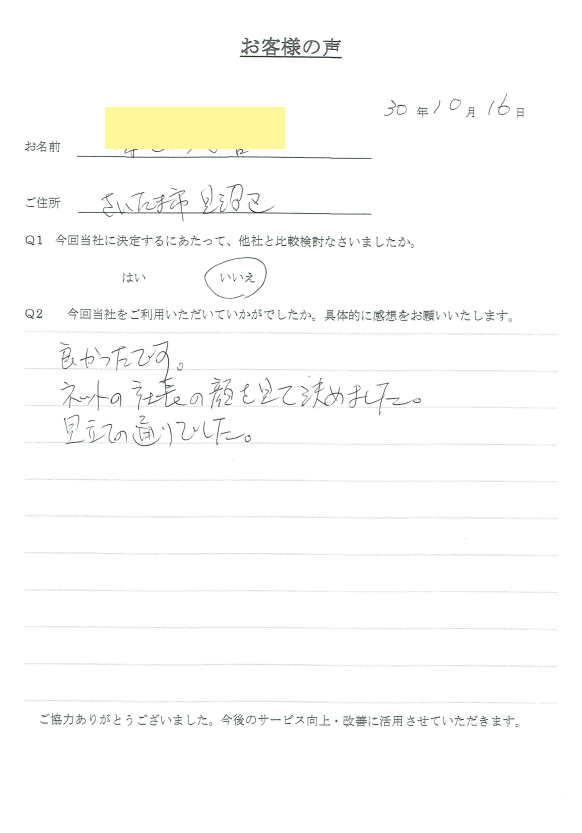 お客様の声
30年10月16日
お名前
ご住所 さいたま市見沼区
Q1 今回当社に決定するにあたって、他社と比較検討なさいましたか。
はい いいえ
Q2 今回当社をご利用いただいていかがでしたか。具体的に感想をお願いいたします。
良かったです。
ネットの社長の顔を見て決めました。
見立ての通りでした。
ご協力ありがとうございました。今後のサービス向上・改善に活用させていただきます。